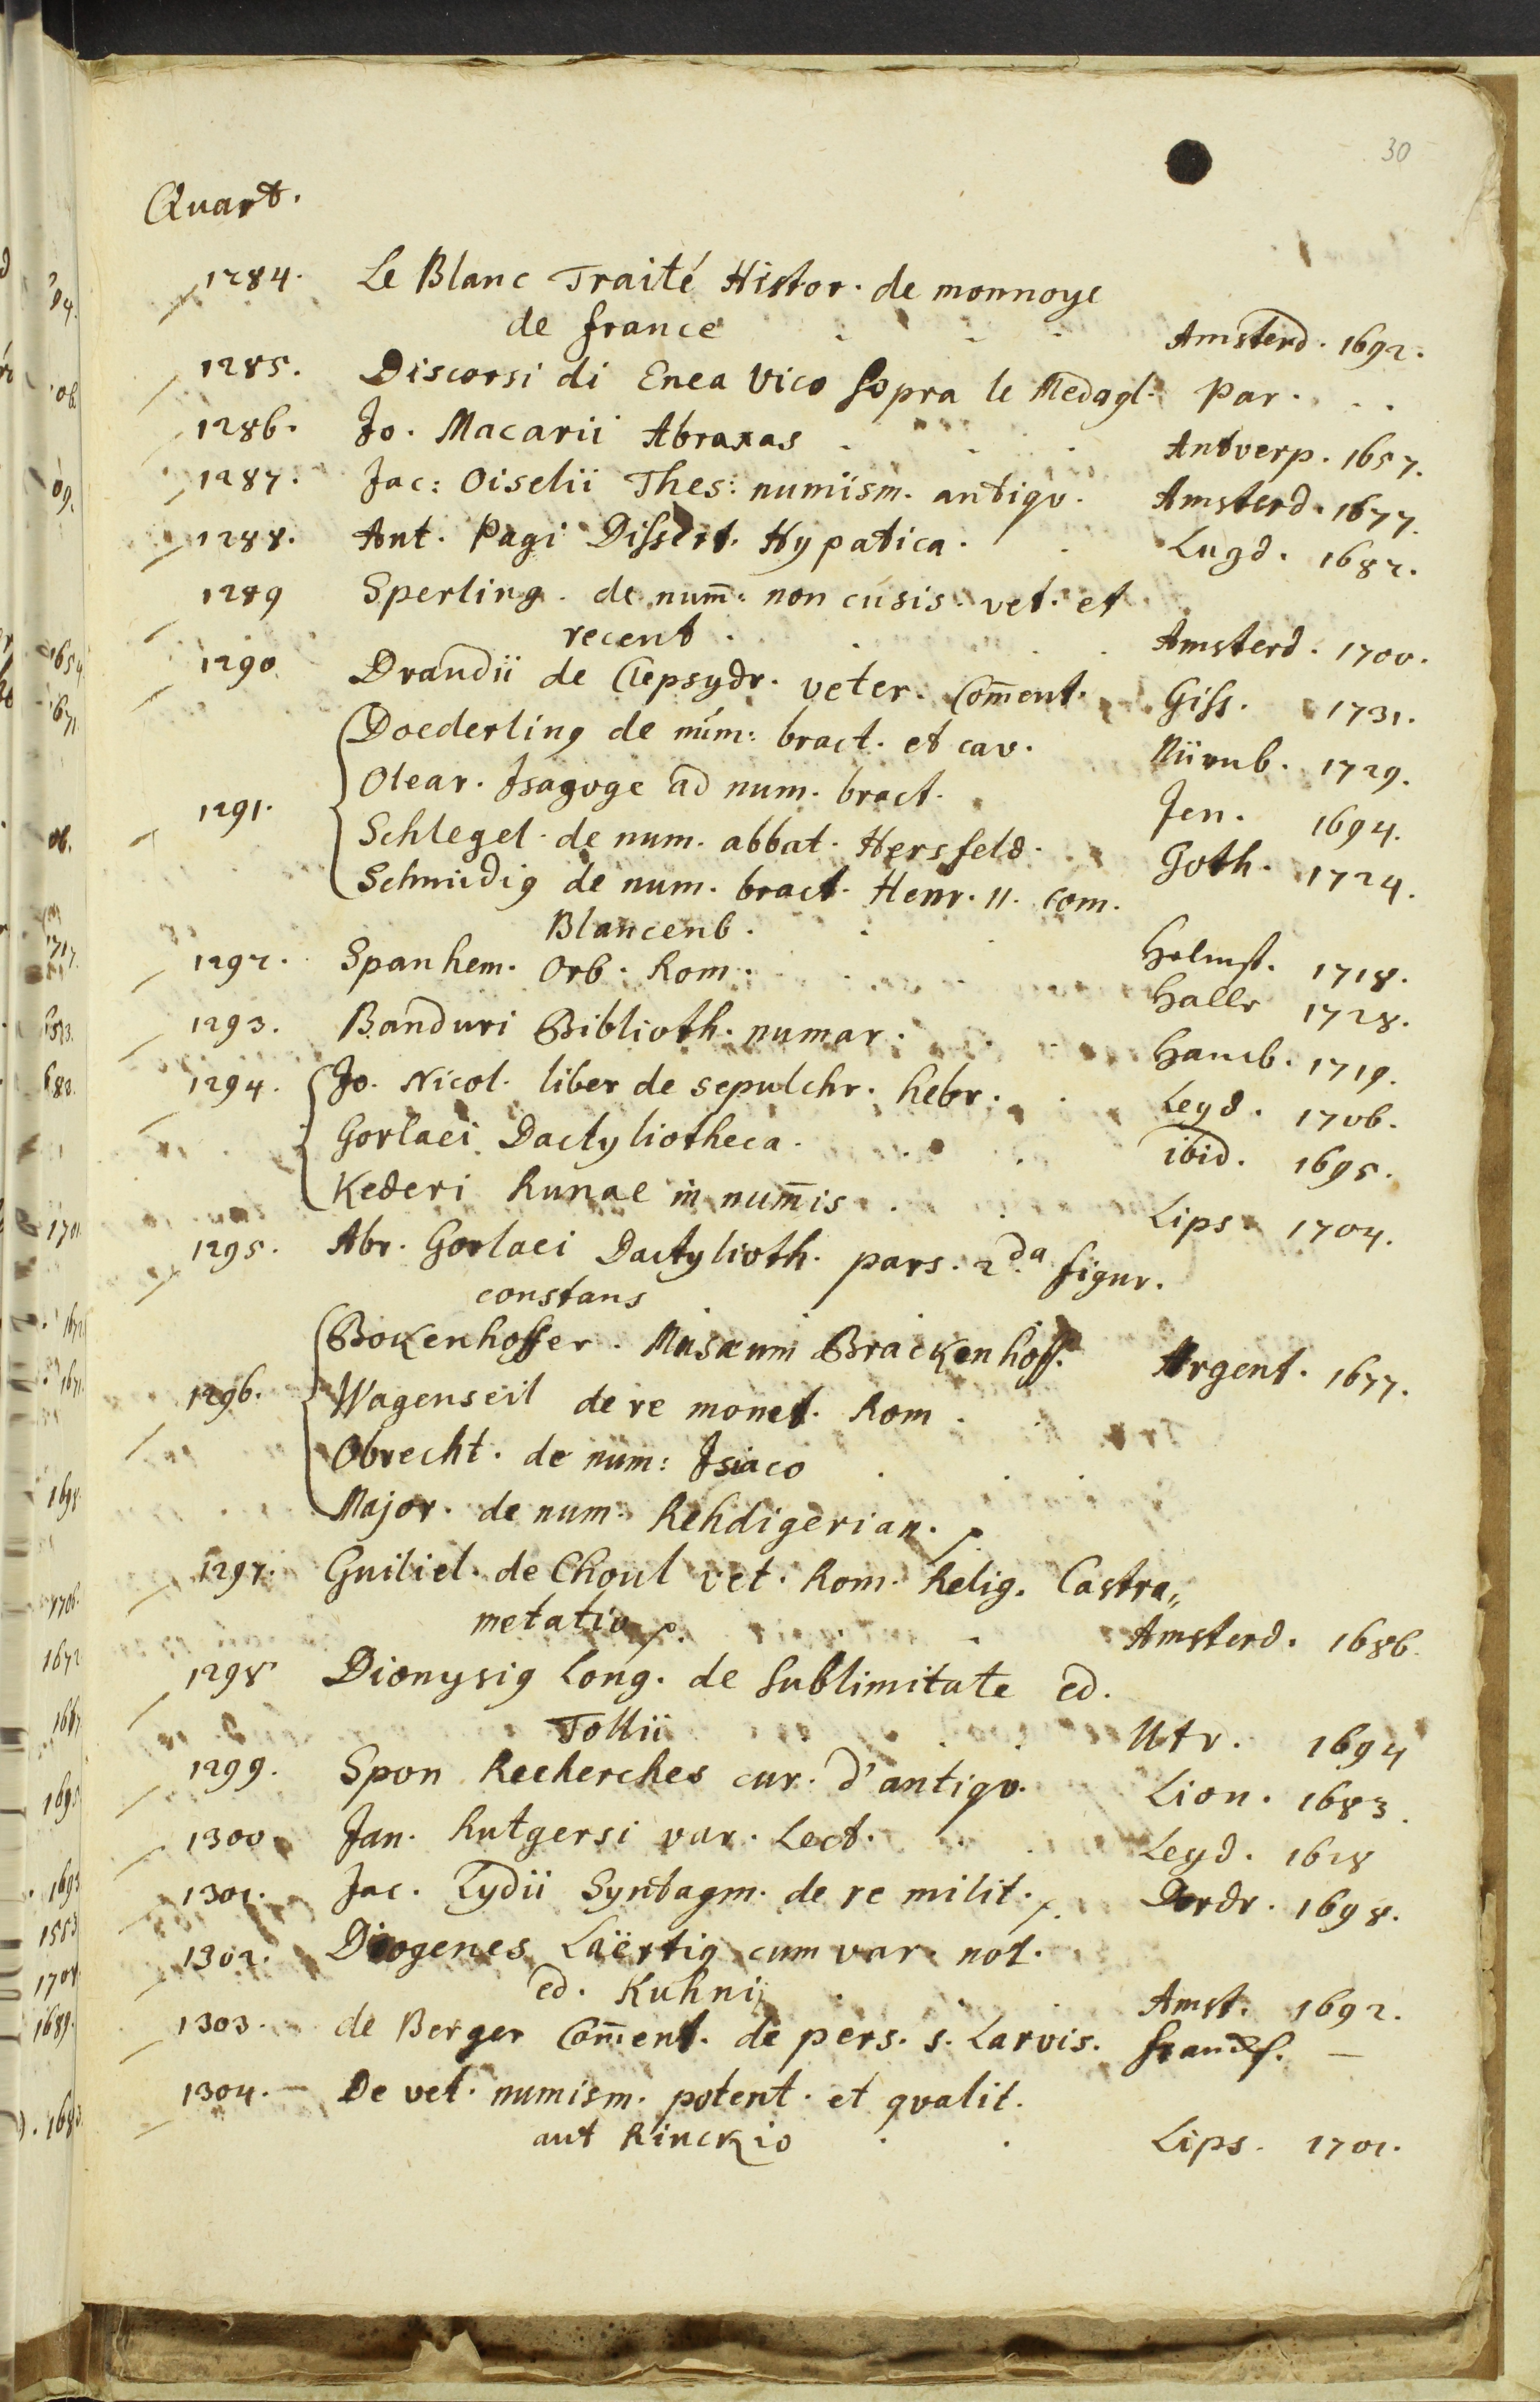 30
Quart.
1284. Le Blanc Traité Histor. de monnoye
de france Amsterd. 1692.
1285. Discorsi di Enea Vico sopra le Medagl. Par.
1286. Jo. Macarii Abraxas Antverp. 1657.
1287. Jac: Oiselii Thes: numism. antiqv. Amsterd. 1677.
1288. Ant. Pagi Dissert. Hypatica. Lugd. 1682.
1289 Sperling. de num̅: non cusis. vet. et
recent. Amsterd. 1700.
1290 Drandii de Clepsydr. veter. Com̅ent. Giss. 1731.
Doederling de num: bract. et cav. Nürnb. 1729.
Olear. Isagoge ad num. bract. Jen. 1694.
1291. Schlegel. de num. abbat. Hersfeld. Goth. 1724.
Schmidig de num. bract. Henr. II. com.
Blancenb. Helmst. 1718.
1292. Spanhem. Orb. Rom. Halle 1728.
1293. Banduri Biblioth. numar. Hamb. 1719.
1294. Jo. Nicol. liber de sepulchr. hebr. Leyd. 1706.
Gorlaei Dactyliotheca. ibid. 1695.
Kederi Runae in num̅is Lips. 1704.
1295. Abr. Gorlaei Dactylioth. pars. 2da figur.
constans
Bokenhoffer. Musaeum Brackenhoff. Argent. 1677.
1296. Wagenseil de re monet. Rom.
Obrecht. de num: Isiaco
Major. de num. Rehdigerian.
1297. Guiliel. de Choul vet. Rom. Relig. Castra„
metatio Amsterd. 1686.
1298 Dionysig Long. de sublimitate ed.
Tollii Utr. 1694
1299. Spon Recherches cur. d'antiqv. Lion. 1683.
1300 Jan. Rutgersi var. Lect. Leyd. 1618
1301. Jac. Lydii Syntagm. de re milit. Dordr. 1698.
1302. Diogenes Laërtig cum var. not.
ed. Kuhnii Amst. 1692.
1303. de Berger Com̅ent. de pers. s. Larvis. francf. —
1304. — De vet. numism. potent. et qvalit.
aut Rinckio Lips. 1701.